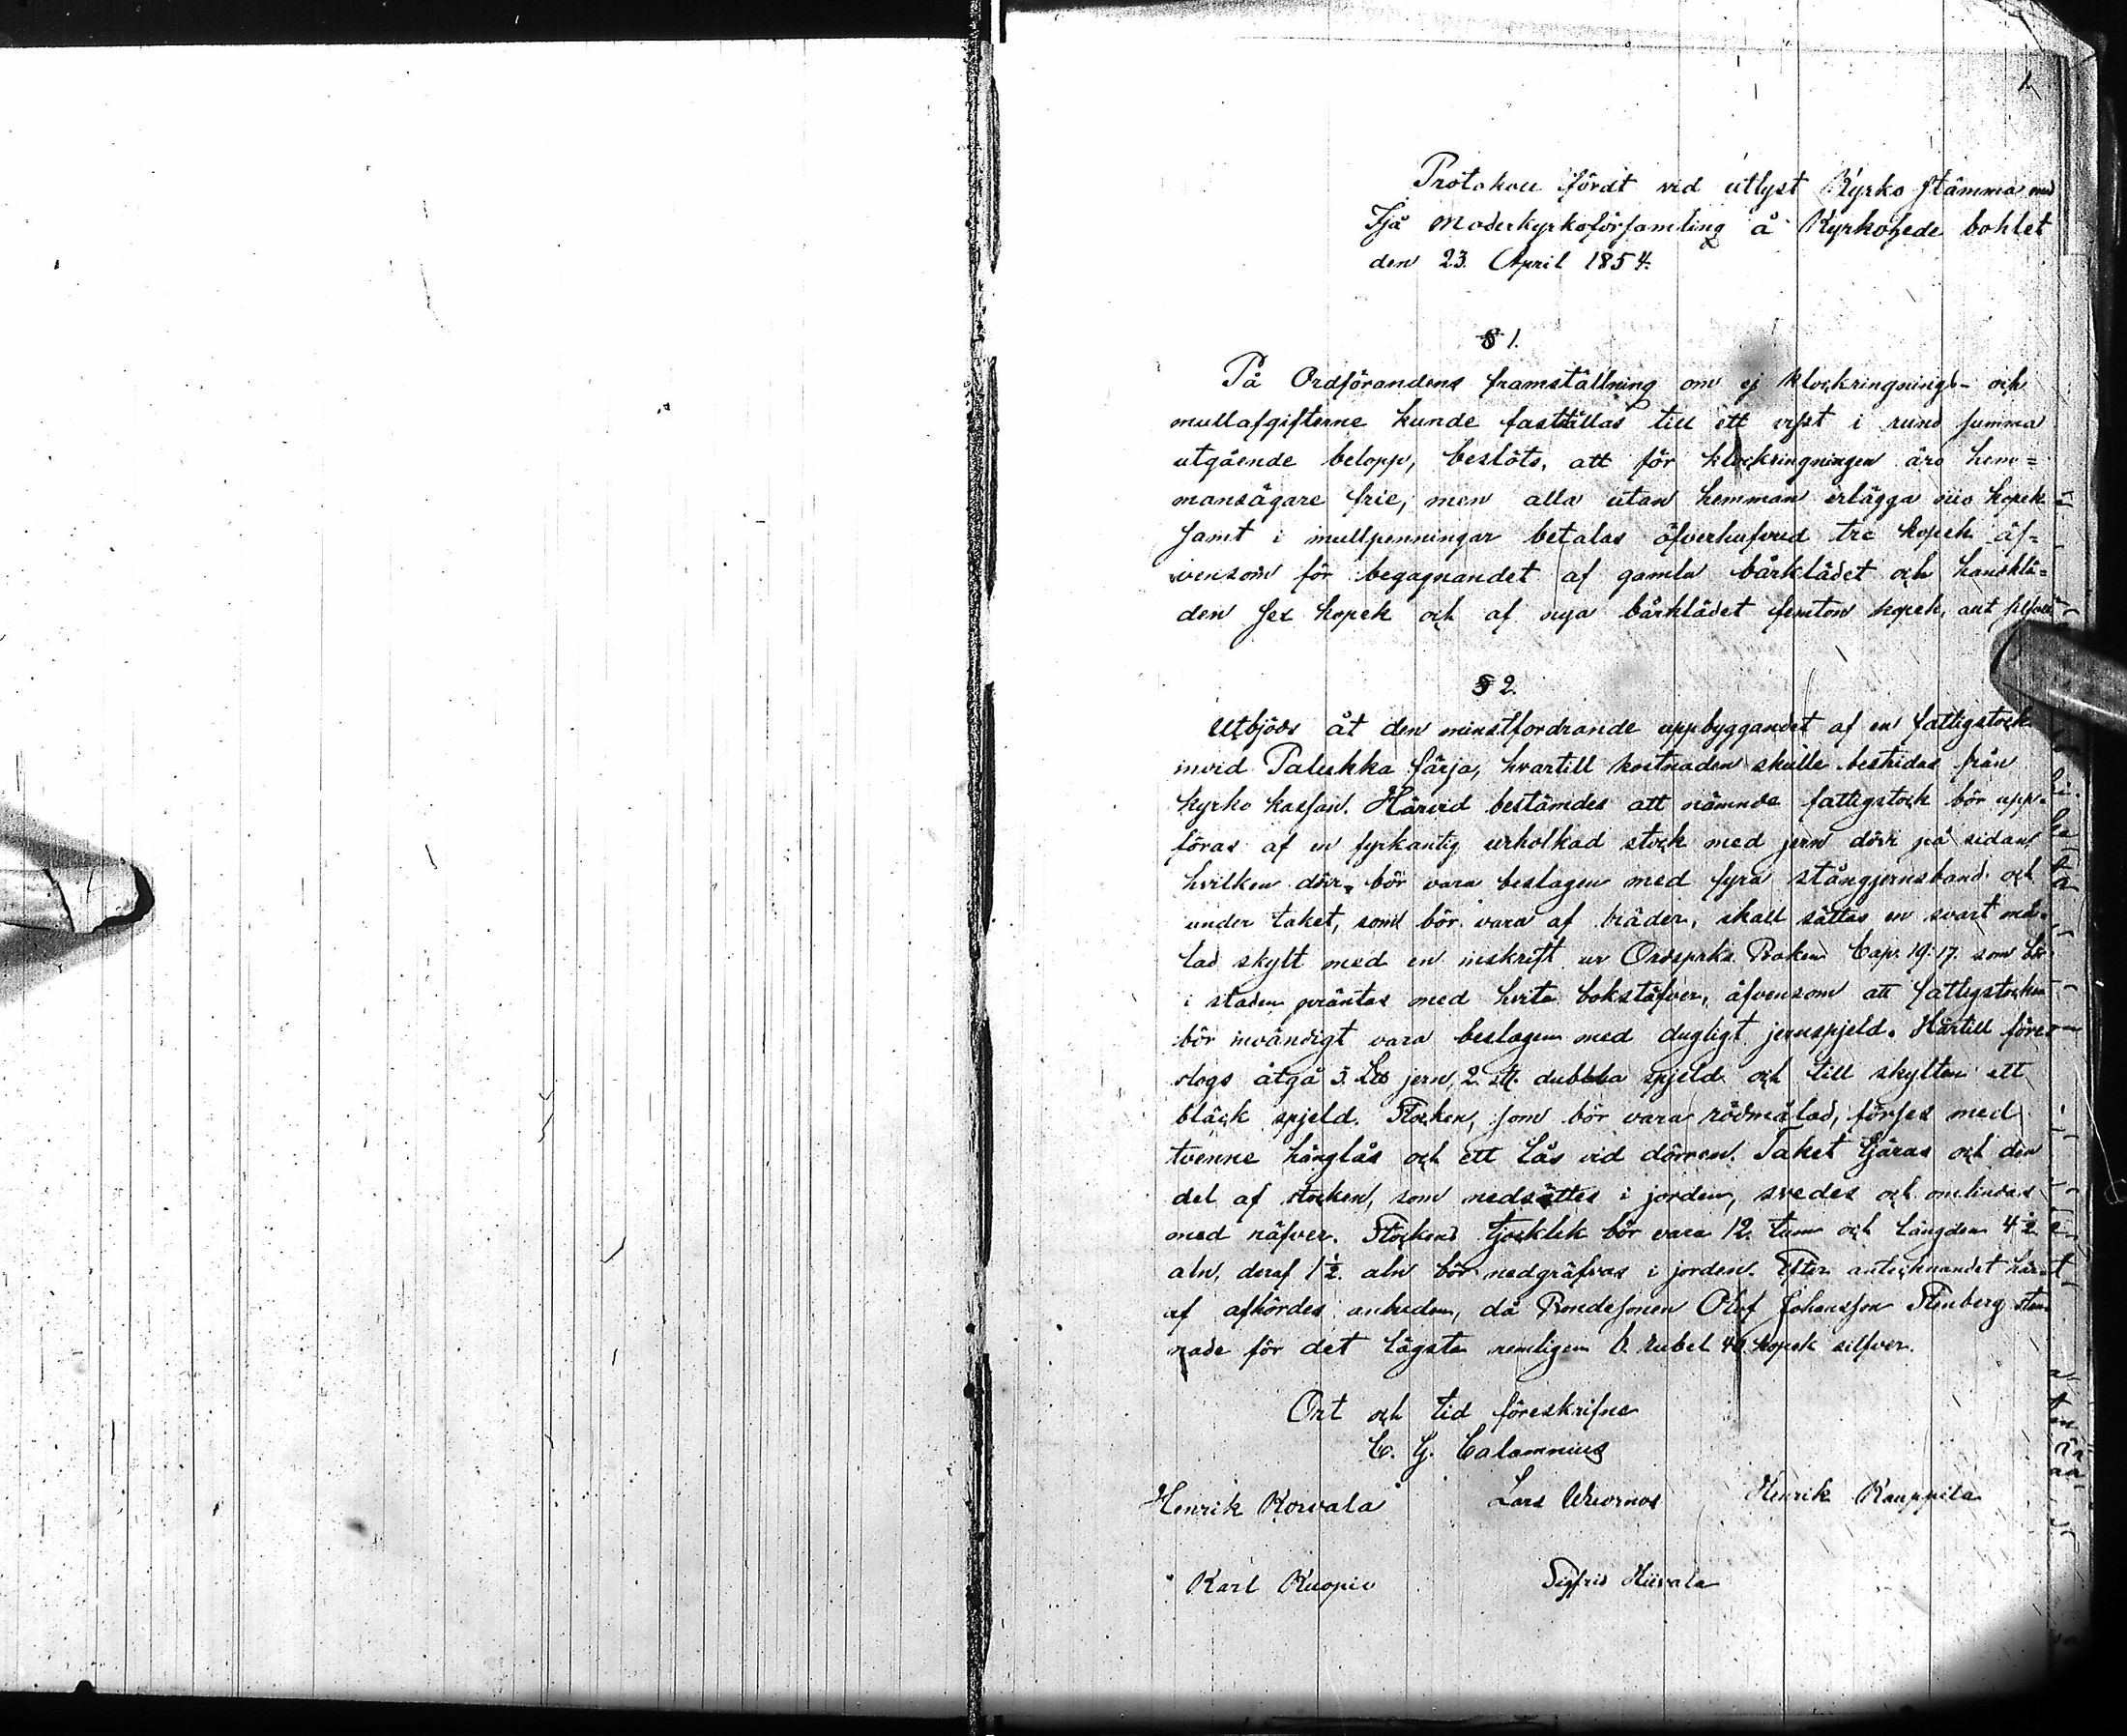 1.
Protokoll fördt vid utlyst Kyrko stämma med
Ijå Moderkyrkoförsamling å Kyrkoherde bohlet
den 23. April 1854.
§ 1.
På Ordförandens framställning om ej klockringnings- och
mullafgifterne kunde fastställas till ett visst i rund summa
utgående belopp, beslöts, att för klockringningen äro hem=
mansägare frie, men alla utan hemman erlägga nio kopek
samt i mullpenningar betalas öfverhufvud tre kopek äf=
vensom för begagnandet af gamla bårklädet och handklä=
den sex kopek och af nya bårklädet femton kopek, allt silfver.
§ 2.
Utbjöds åt den minstfordrande uppbyggandet af en fattigstock
invid Palukka färja, hvartill kostnaden skulle bestridas från
kyrko kassan. Härvid bestämdes att nämnde fattigstock bör upp=
föras af en fyrkantig urholkad stock med jern dörr på sidan
hvilken dörr bör vara beslagen med fyra stångjernsband och
under taket, som bör vara af bräder, skall sättas en svart må=
lad skylt med en inskrift ur Ordsprks Boken Cap. 19: 17. som bör
i staden präntas med hvita bokstäfver, äfvensom att fattigstocken
bör invändigt vara beslagen med dugligt jernspjeld. Härtill före=
slogs åtgå 3. L℔ jern, 2. st. dubbla spjeld och till skylten ett
bläck spjeld. Stocken, som bör vara rödmålad, förses med
tvenne hänglås och ett lås vid dörren. Taket tjäras och den
del af stocken, som nedsättes i jorden, svedes och omlindas
med näfver. Stockens tjocklek bör vara 12. tum och längden 4½
aln, deraf 1½. aln bör nedgräfvas i jorden. Efter antecknandet här=
af afhördes anbuden, då Bondesonen Olof Johansson Stenberg stan=
nade för det lägsta nemligen 6. rubel 40 kopek silfver.
Ort och tid föreskrifne
C. G. Calamnius
Henrik Korvala Lars Wuornos Henrik Kauppila
Karl Kuopio Sigfrid Hiivala